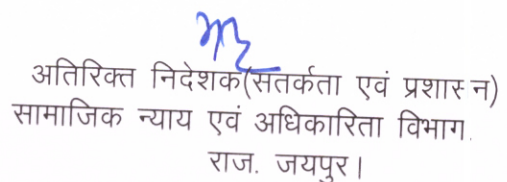 अतिरिक्त निदेशक(सतर्कता एवं प्रशासन)
सामाजिक न्याय एवं अधिकारिता विभाग.
राज. जयपुर।